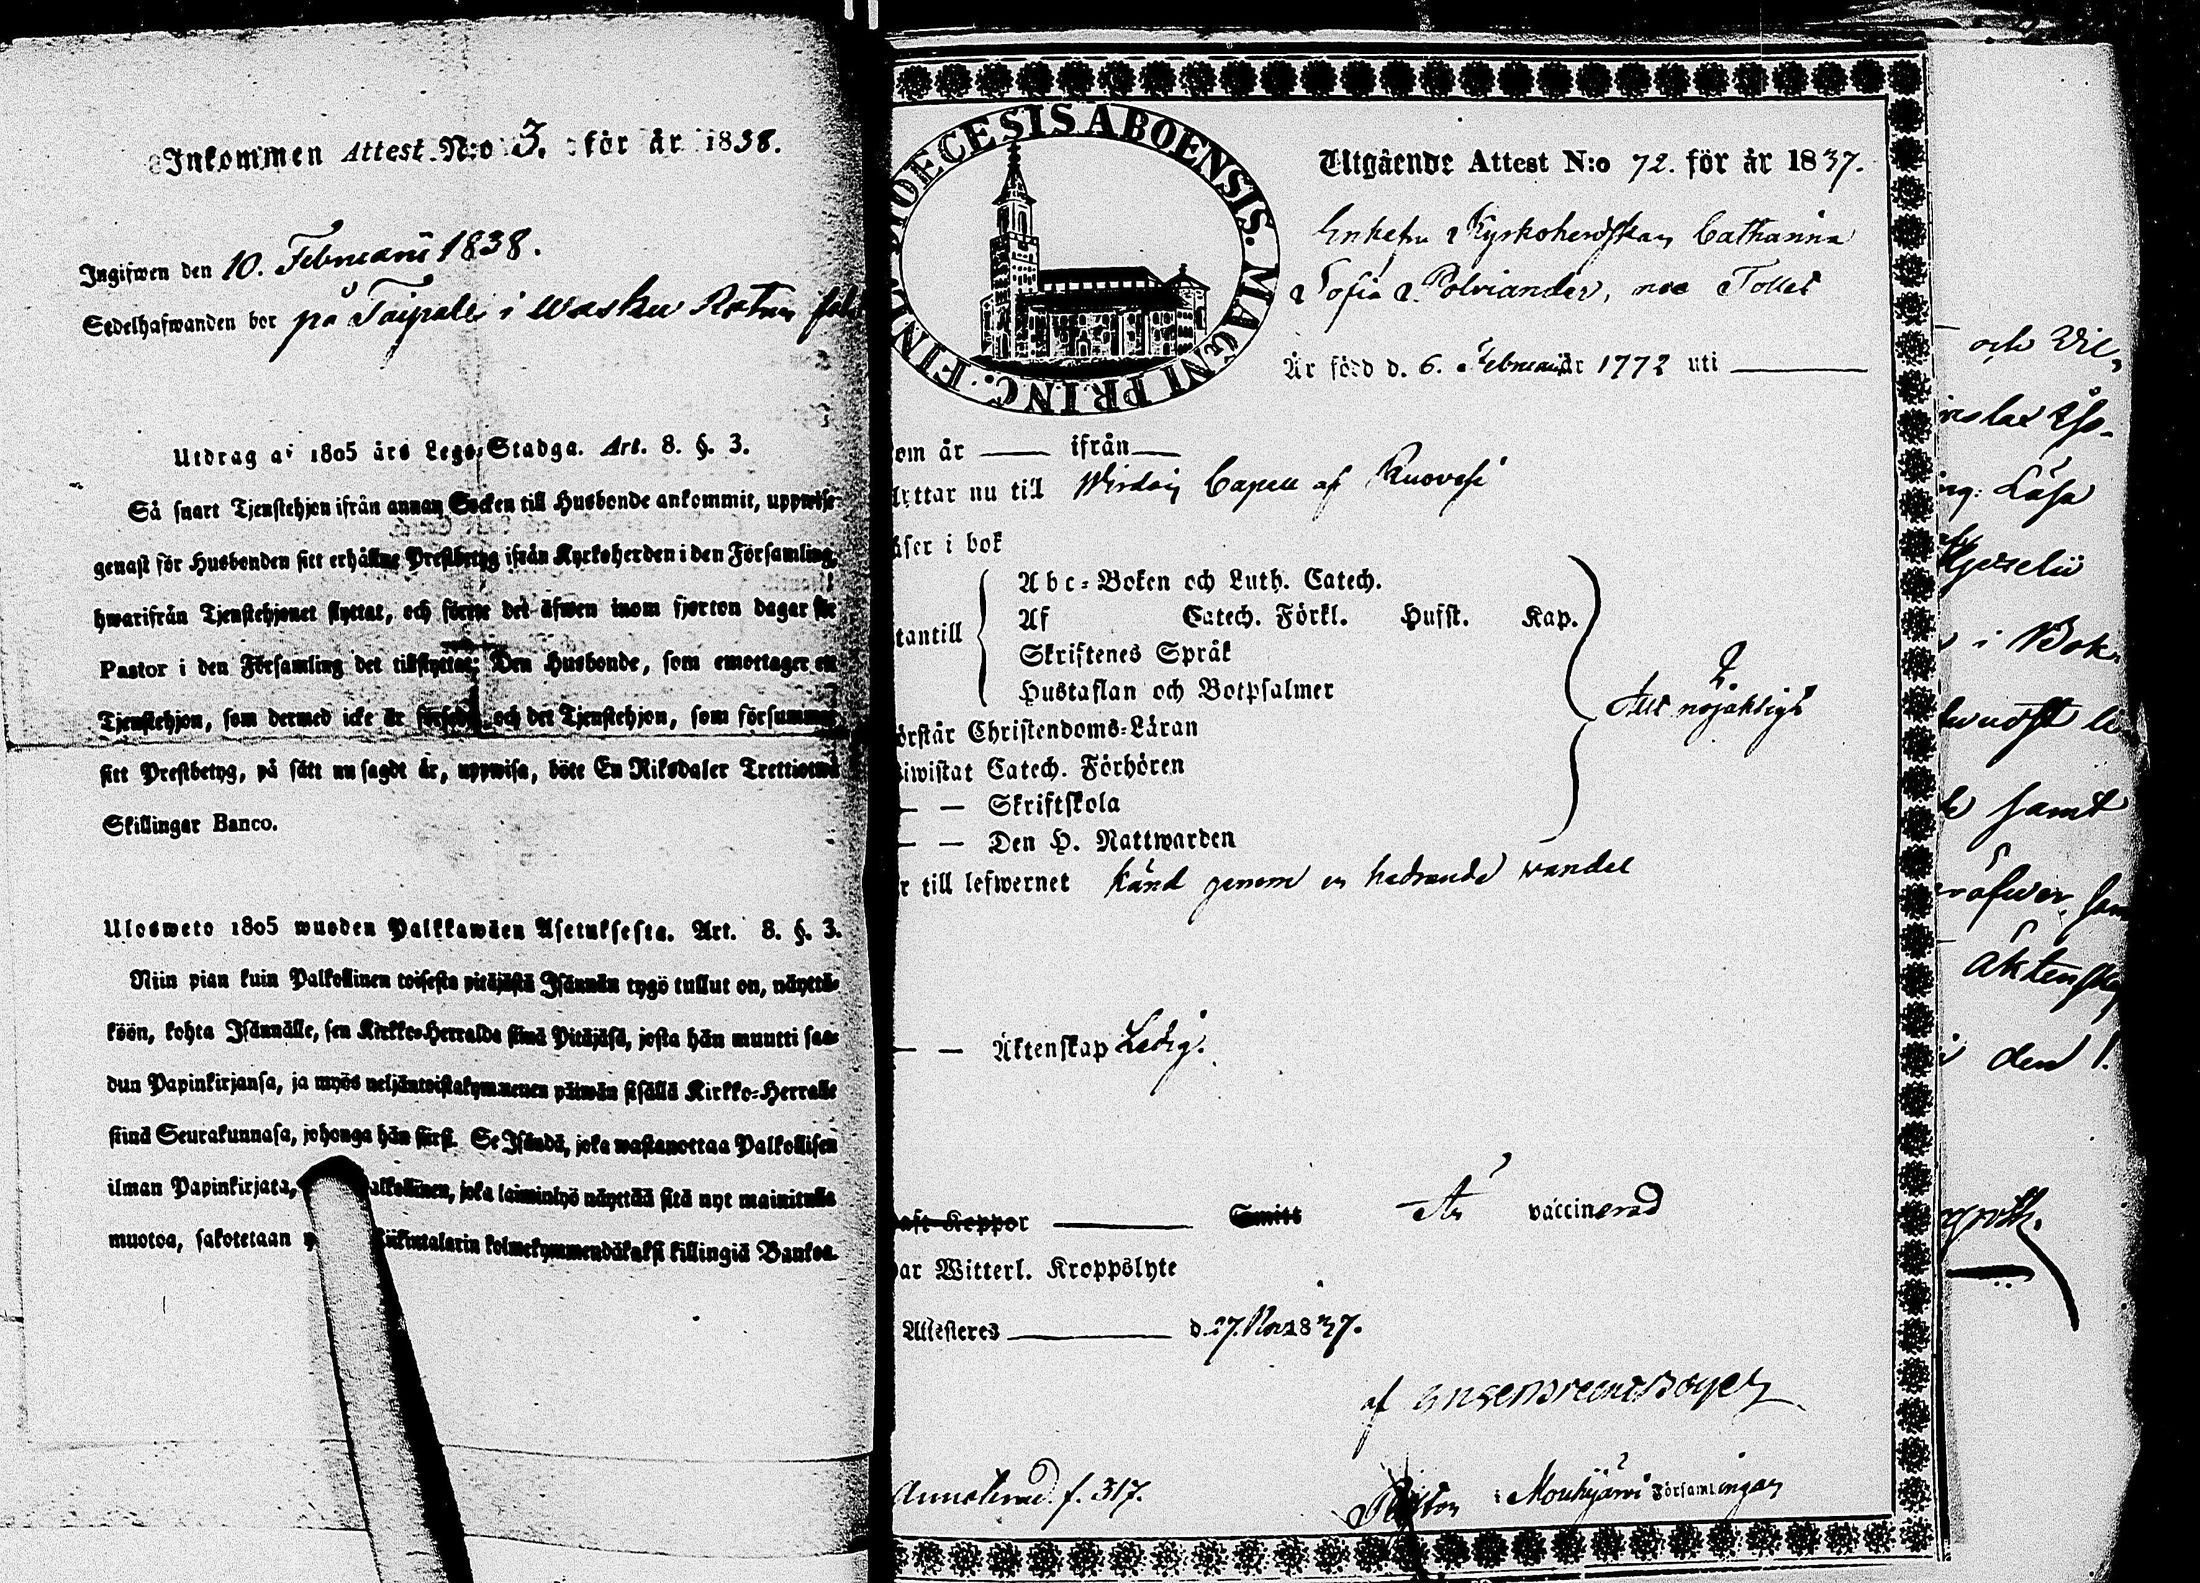 Inkommen Attest N:o 3. för år 1838.
Ingifwen den 10. Februarii 1838.
Sedelhafwanden bor på Taipale i Wasku Rotan
Utdrag af 1805 års Lego-Stadga. Art. 8. §. 3.
Så snart Tjenstehjon ifrån annan Socken till Husbonde ankommit, uppwise
genast för Husbonden sitt erhållne Prestbetyg ifrån Kyrkoherden i den Församling,
hwarifrån Tjenstehjonet flyttat, och förete det äfwen inom fjorton dagar för
Pastor i den Församling det tillflyttat; Den Husbonde, som emottager ett
Tjenstehjon, som dermed icke är försedt, och det Tjenstehjon, som försummar
sitt Prestbetyg, på sätt nu sagdt är, uppwisa, böte En Riksdaler Trettiotwå
Skillingar Banco.
Ulosweto 1805 wuoden Palkkawäen Asetuksesta. Art. 8. §. 3.
Niin pian kuin Palkollinen toisesta pitäjästä Isännän tygö tullut on, näyttä-
köön, kohta Isännälle, sen Kirkko-Herralda siinä Pitäjäsä, josta hän muutti saa-
dun Papinkirjansa, ja myös neljäntoistakymmenen päiwän sisällä Kirkko-Herralle
siinä Seurakunnasa, johonga hän siirsi. Se Isändä, joka wastanottaa Palkollisen
ilman Papinkirjata, alkollinen, joka laiminlyö näyttää sitä nyt mainitulla
muotoa, sakotetaan Riikintalarin kolmekymmendäkaksi killingiä Bankoa.
DIOECESIS ABOENSIS. MAGNI PRINC. FINL
Utgående Attest N:o 72. för år 1837.
Enkefru Kyrkoherdskan Catharina
Sofia Polviander, née Tollet
År född d. 6. Februari år 1772 uti
om år ifrån
lyttar nu till Wirdois Capell af Ruovesi
äser i bok
Abc-Boken och Luth. Catech.
Af Catech. Förkl. Hufst. Kap.
tantill
Skriftenes Språk
Hustaflan och Botpsalmer
Allt nöjaktligt
örstår Christendoms-Läran
iwistat Catech. Förhören
— — Skriftskola
— — Den H. Nattwarden
r till lefwernet känd genom en hedrande wandel
— — Äktenskap Ledig.
aft Koppor Smitt Är vaccinerad
ar Witterl. Kroppslyte
Attesteres d. 27. Nov. 1837.
af
Annoterad f. 317.
Pastor i Mouhijärvi Församlingen
och
Läsa
i Bok
samt
Äktensk
den 1.